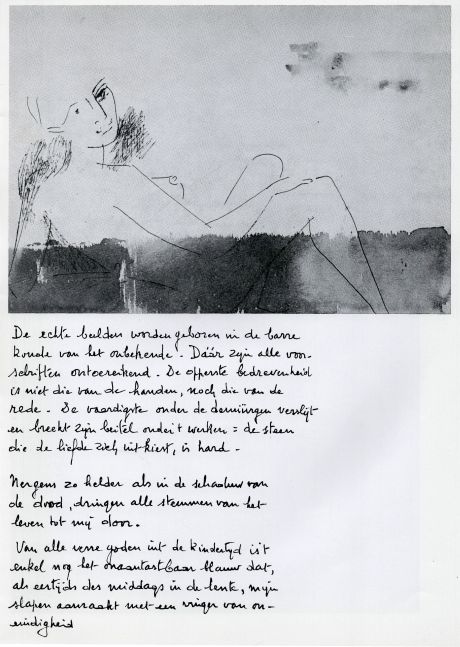 De echte beelden worden geboren in de barre
koude van het onbekende. Dáár zijn alle voor-
schriften ontoereikend. De opperste bedrevenheid
is niet die van de handen, noch die van de
rede. De vaardigste onder de demiürgen verslijt
en breekt zijn beitel onder 't werken = de steen
die de liefde zich uitkiest, is hard.
Nergens zo helder als in de schaduw van
de dood, dringen alle stemmen van het
leven tot mij door.
Van alle verre goden uit de kindertijd is 't
enkel nog het onaantastbaar blauw dat,
als eertijds des middags in de lente, mijn
slapen aanraakt met een vinger van on-
eindigheid